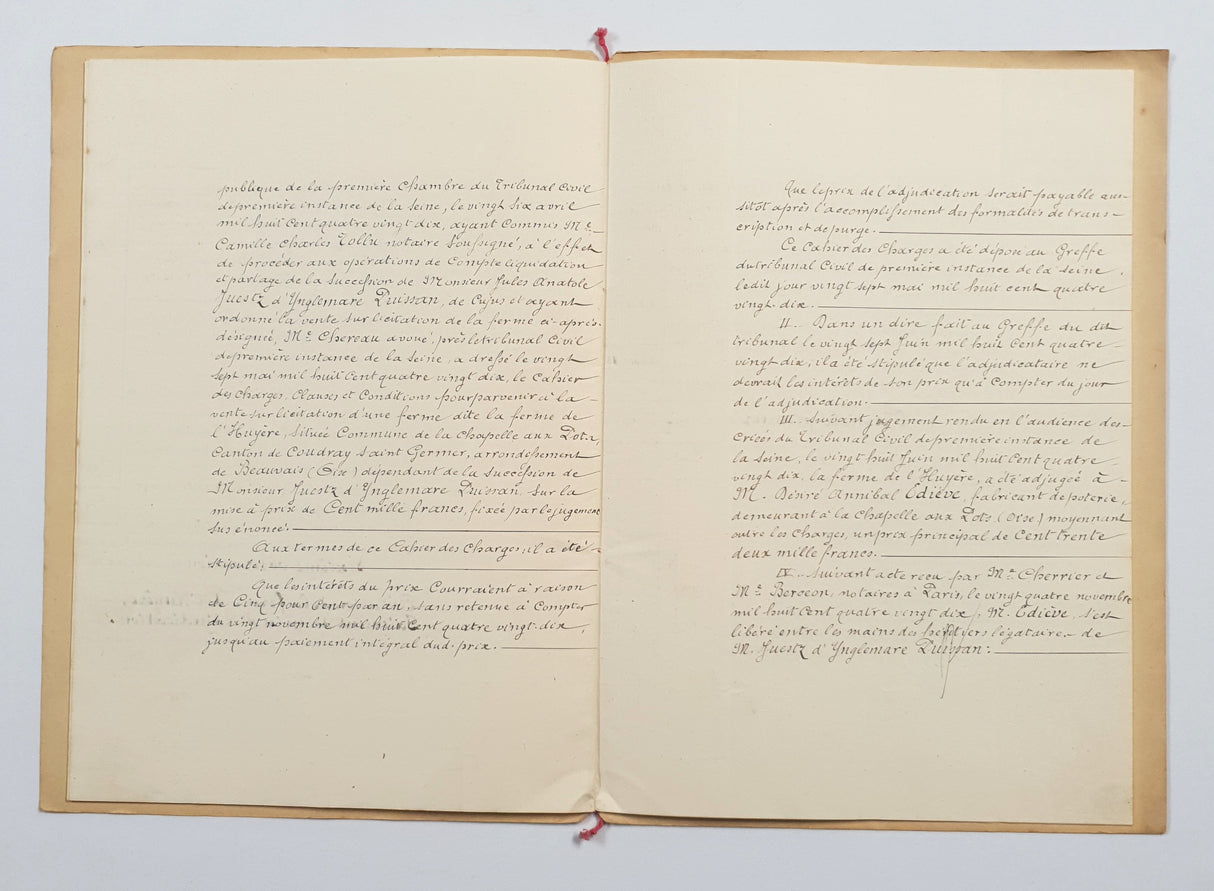 publique de la première Chambre du Tribunal Civil
de première instance de la Seine, le vingt six avril
mil huit Cent quatre vingt dix, ayant Commis Me
Camille Charles Tollu notaire Soussigné, à l'effet
de procéder aux opérations de Compte liquidation
et partage de la Succession de Monsieur Jules Anatole
Juestz d'Ynglemare Duissan, de Cujus et ayant
ordonné la vente Sur licitation de la ferme ci-après
désignée, Me Chereau avoué, près le tribunal Civil
de première instance de la Seine, a dressé le vingt
Sept mai mil huit Cent quatre vingt dix, le Cahier
des Charges, Clauses et Conditions pour parvenir à la
vente Sur licitation d'une ferme dite la ferme de
l'Huyère, située Commune de la Chapelle aux Pots,
Canton de Coudray Saint Germer, arrondissement
de Beauvais (Oise) dépendant de la Succession de
Monsieur Juestz d'Ynglemare Duissan, Sur la
mise à prix de Cent mille francs, fixée par le jugement
Sus énoncé.
Aux termes de ce Cahier des Charges, il a été
Stipulé:
Que les intérêts du prix Courraient à raison
de Cinq pour Cent par an, Sans retenue à Compter
du vingt novembre mil huit Cent quatre vingt dix,
jusqu'au paiement intégral dud. prix.
Que le prix de l'adjudication Serait payable aus-
sitôt après l'accomplissement des formalités de trans-
cription et de purge.
Ce Cahier des Charges a été déposé au Greffe
du tribunal Civil de première instance de la Seine,
ledit jour vingt Sept mai mil huit Cent quatre
vingt-dix.
II.. Dans un dire fait au Greffe du dit
tribunal le vingt Sept Juin mil huit Cent quatre
vingt dix, il a été Stipulé que l'adjudicataire ne
devrait les intérêts de Son prix qu'à Compter du jour
de l'adjudication.
III.. Suivant jugement rendu en l'audience des
Criées du Tribunal Civil de première instance de
la Seine, le vingt huit Juin mil huit Cent quatre
vingt dix, la ferme de l'Huyère, a été adjugée à
M. Désiré Annibal Ediève, fabricant de poterie,
demeurant à la Chapelle aux Pots (Oise) moyennant
outre les Charges, un prix principal de Cent trente
deux mille francs.
IV.. Suivant acte reçu par Me Cherrier et
Me Berceon, notaires à Paris, le vingt quatre novembre
mil huit Cent quatre vingt dix, M. Ediève, S'est
libéré entre les mains des héritiers légataire de
M. Juestz d'Ynglemare Duissan: